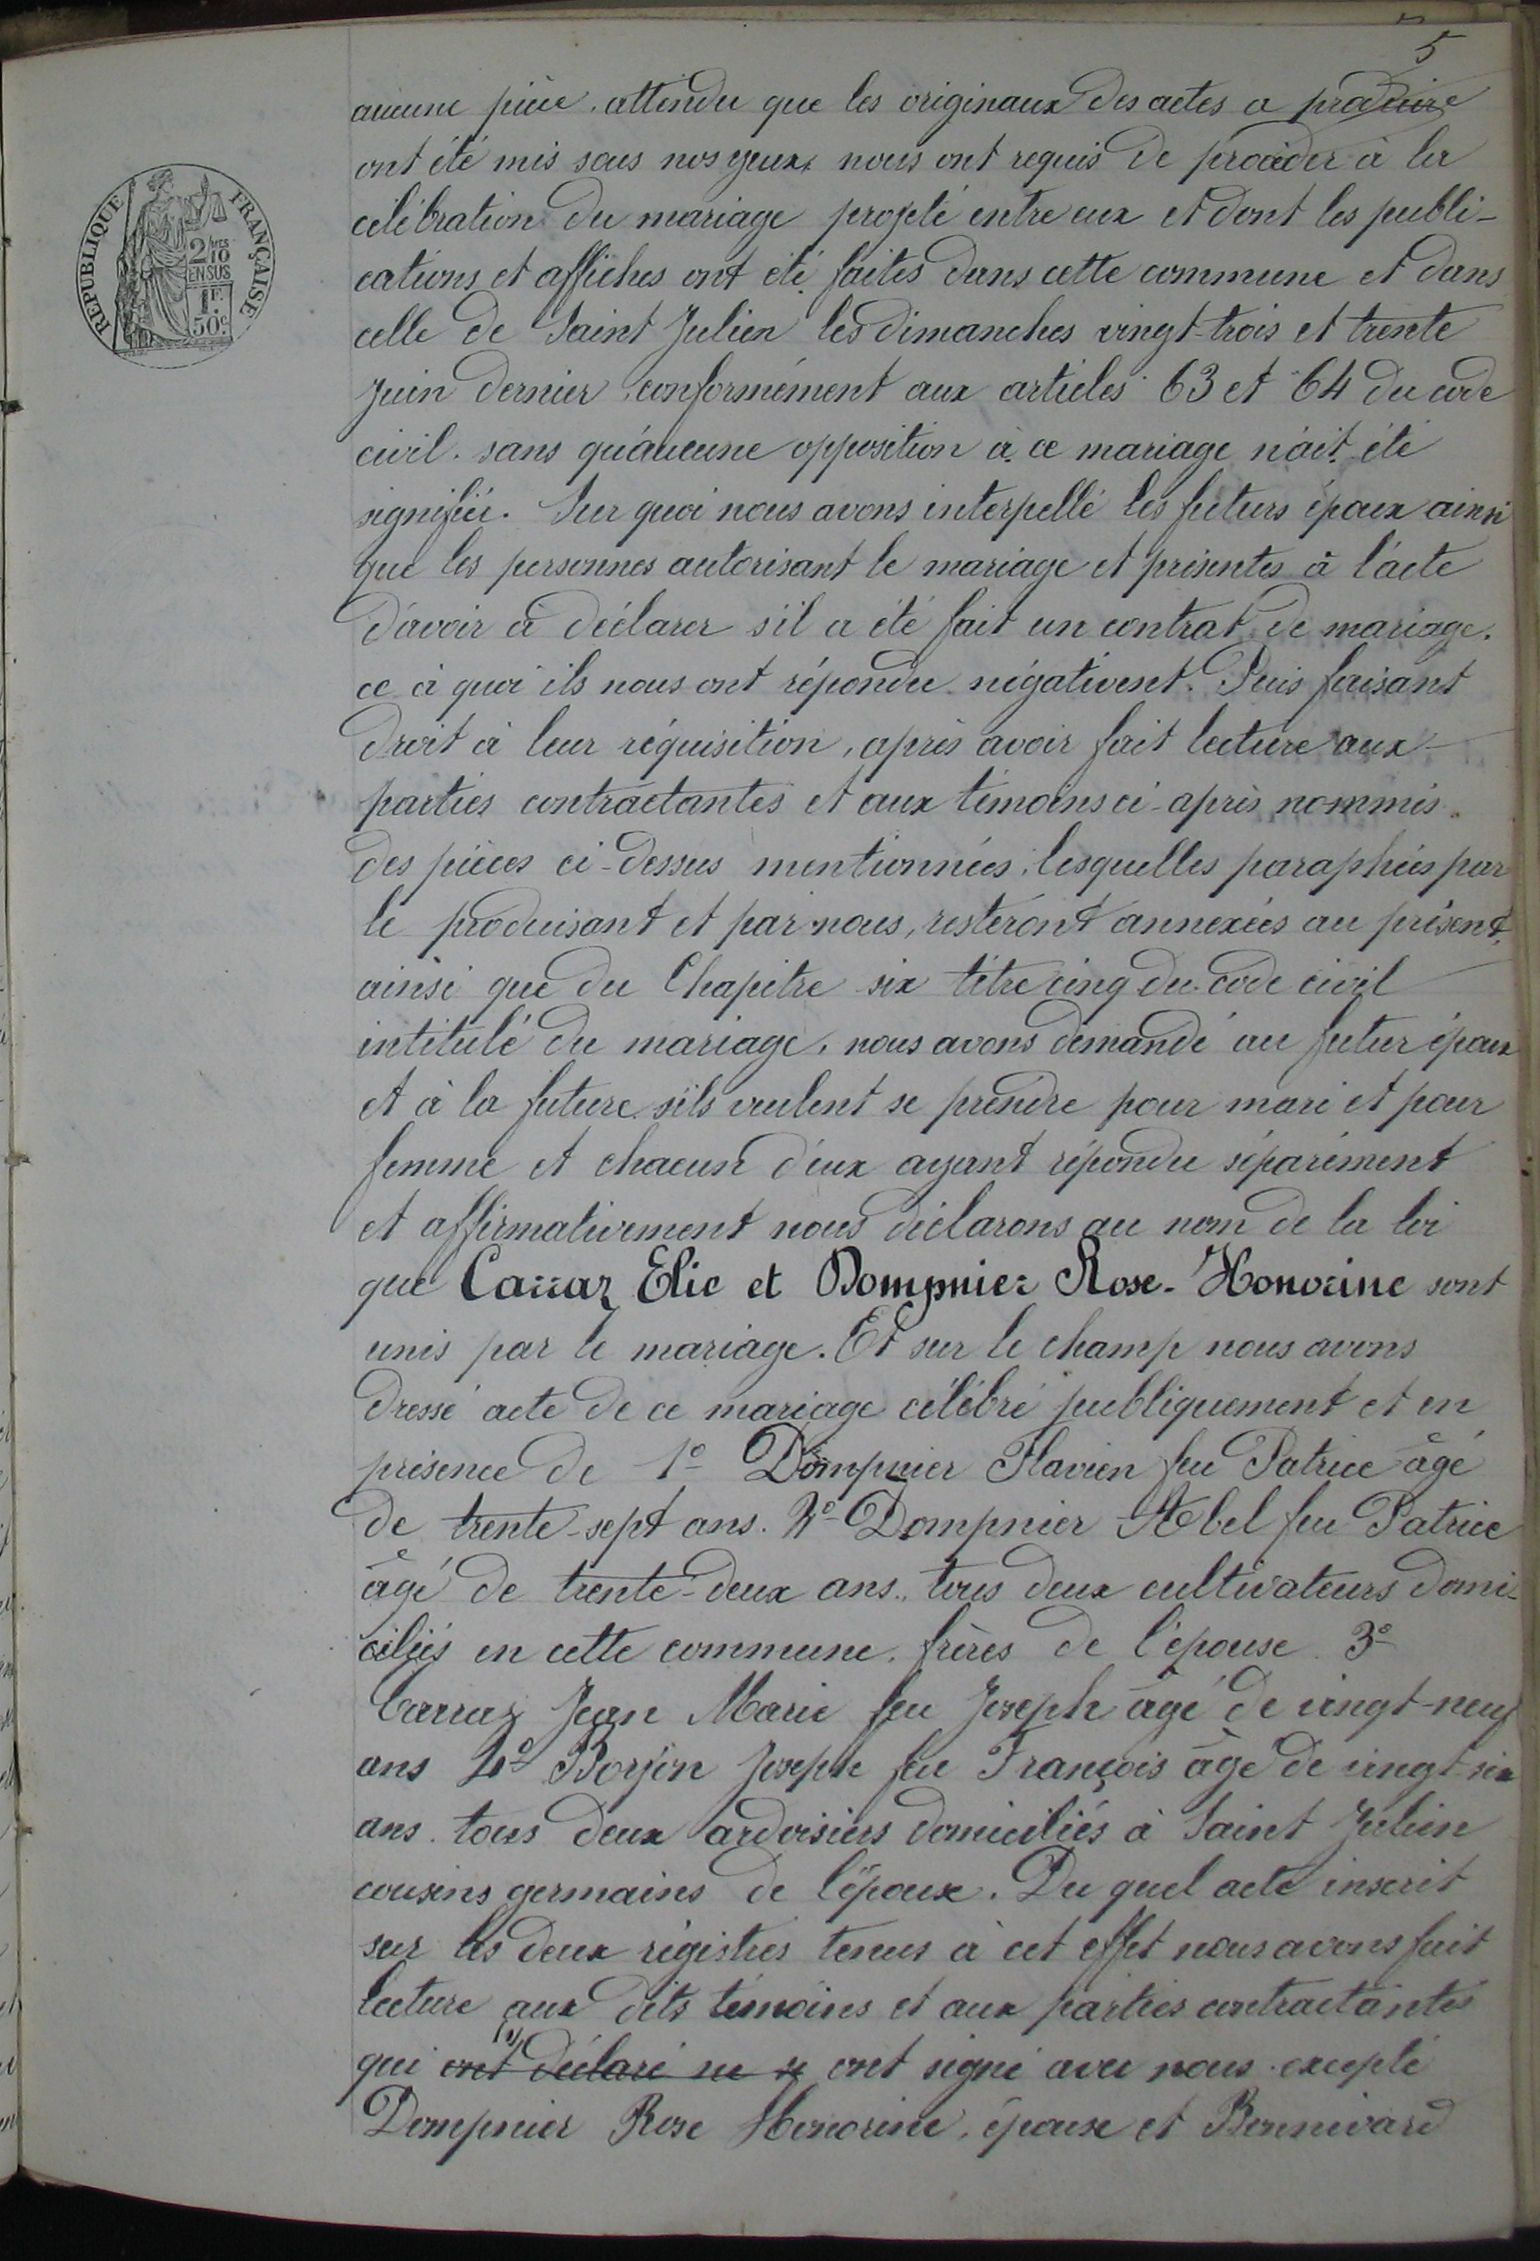 5
aucune pièce, attendu que les originaux des actes a produire
ont été mis sous nos yeux, nous ont requis de procéder à la
célébration du mariage projeté entre eux et dont les publi-
cations et affiches ont été faites dans cette commune et dans
celle de Saint Julien les dimanches vingt-trois et trente
Juin dernier, conformément aux articles 63 et 64 du code
civil. sans qu'aucune opposition à ce mariage n'ait été
signifiée. Sur quoi nous avons interpellé les futurs époux ainsi
que les personnes autorisant le mariage et présentes à l'acte
d'avoir à déclarer s'il a été fait un contrat de mariage.
ce à quoi ils nous ont répondu négativent. Puis faisant
droit à leur réquisition, après avoir fait lecture aux
parties contractantes et aux témoins ci-après nommés.
des pièces ci-dessus mentionnées, lesquelles paraphées par
le produisant et par nous, resteront annexées au présent,
ainsi que du Chapitre six titre cinq du code civil
intitulé du mariage, nous avons demandé au futur époux
et à la future s'ils veulent se prendre pour mari et pour
femme et chacun d'eux ayant répondu séparément
et affirmativement nous déclarons au nom de la loi
que Carraz Elie et Dompnier Rose-Honorine sont
unis par le mariage. Et sur le champ nous avons
dressé acte de ce mariage célébré publiquement et en
présence de 1° Dompnier Flavien feu Patrice âgé
de trente-sept ans. 2° Dompnier Abel feu Patrice
âgé de trente-deux ans, tous deux cultivateurs domi-
ciliés en cette commune, frères de l'épouse 3°
Carraz Jean Marie feu Joseph âgé de vingt-neuf
ans 4° Borjon Joseph feu François âgé de vingt-six
ans. tous deux ardoisiers domiciliés à Saint Julien
cousins germains de l'époux. Du quel acte inscrit
sur les deux régistres tenus à cet effet nous avons fait
lecture aux dits témoins et aux parties contractantes
(1)
qui ont déclaré ne s ont signé avec nous excepté
Dompnier Rose Honorine, épouse et Bonnivard
REPUBLIQUE FRANÇAISE
2/10 MES
EN SUS
1F.
50c.